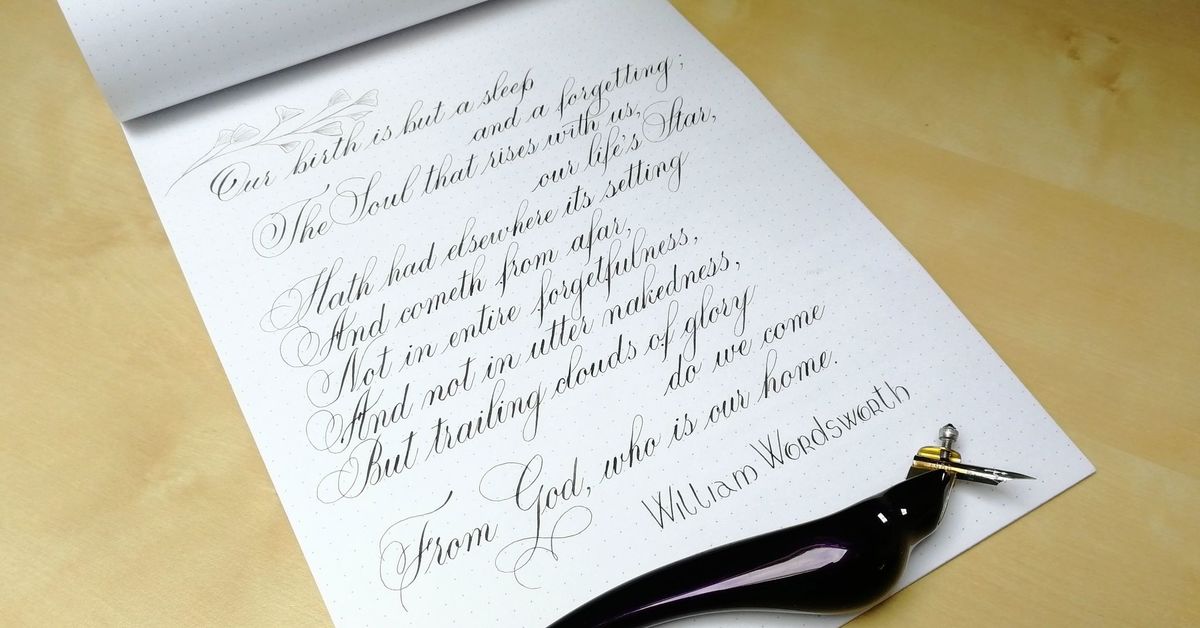 Our birth is but a sleep
and a forgetting;
The Soul that rises with us,
our life's Star,
Hath had elsewhere its setting
And cometh from afar,
Not in entire forgetfulness,
And not in utter nakedness,
But trailing clouds of glory
do we come
From God, who is our home.
William Wordsworth